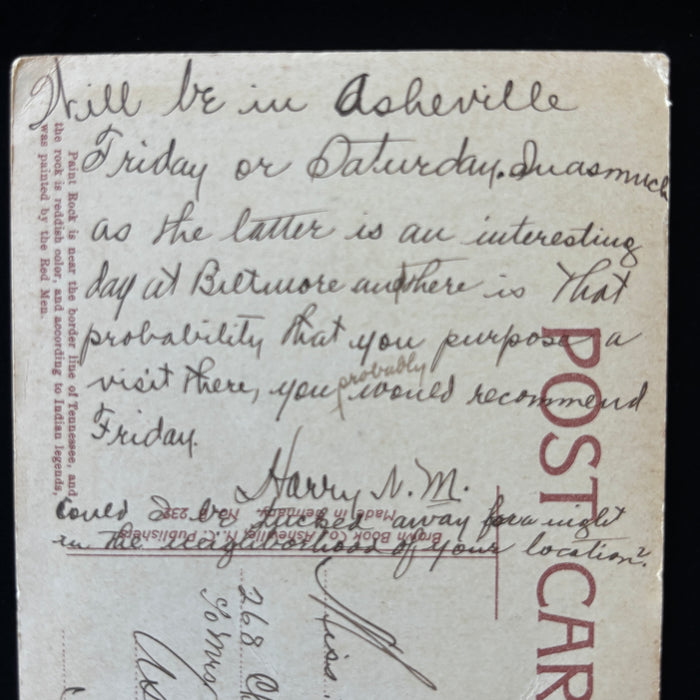 Will be in Asheville
Friday or Saturday. Inasmuch
as the latter is an interesting
day at Biltmore and there is that
probability that you purpose a
visit there, you probably would recommend
Friday.
Harry N. M.
Could I be tucked away for a night
in the neighborhood of your location?
Paint Rock is near the border line of Tennessee, and
the rock is reddish color, and according to Indian legends,
was painted by the Red Men.
POST CAR
Brown Book Co., Asheville, N. C., Publishers.
Made in Germany. No. 232
Miss
268
c/o Mrs